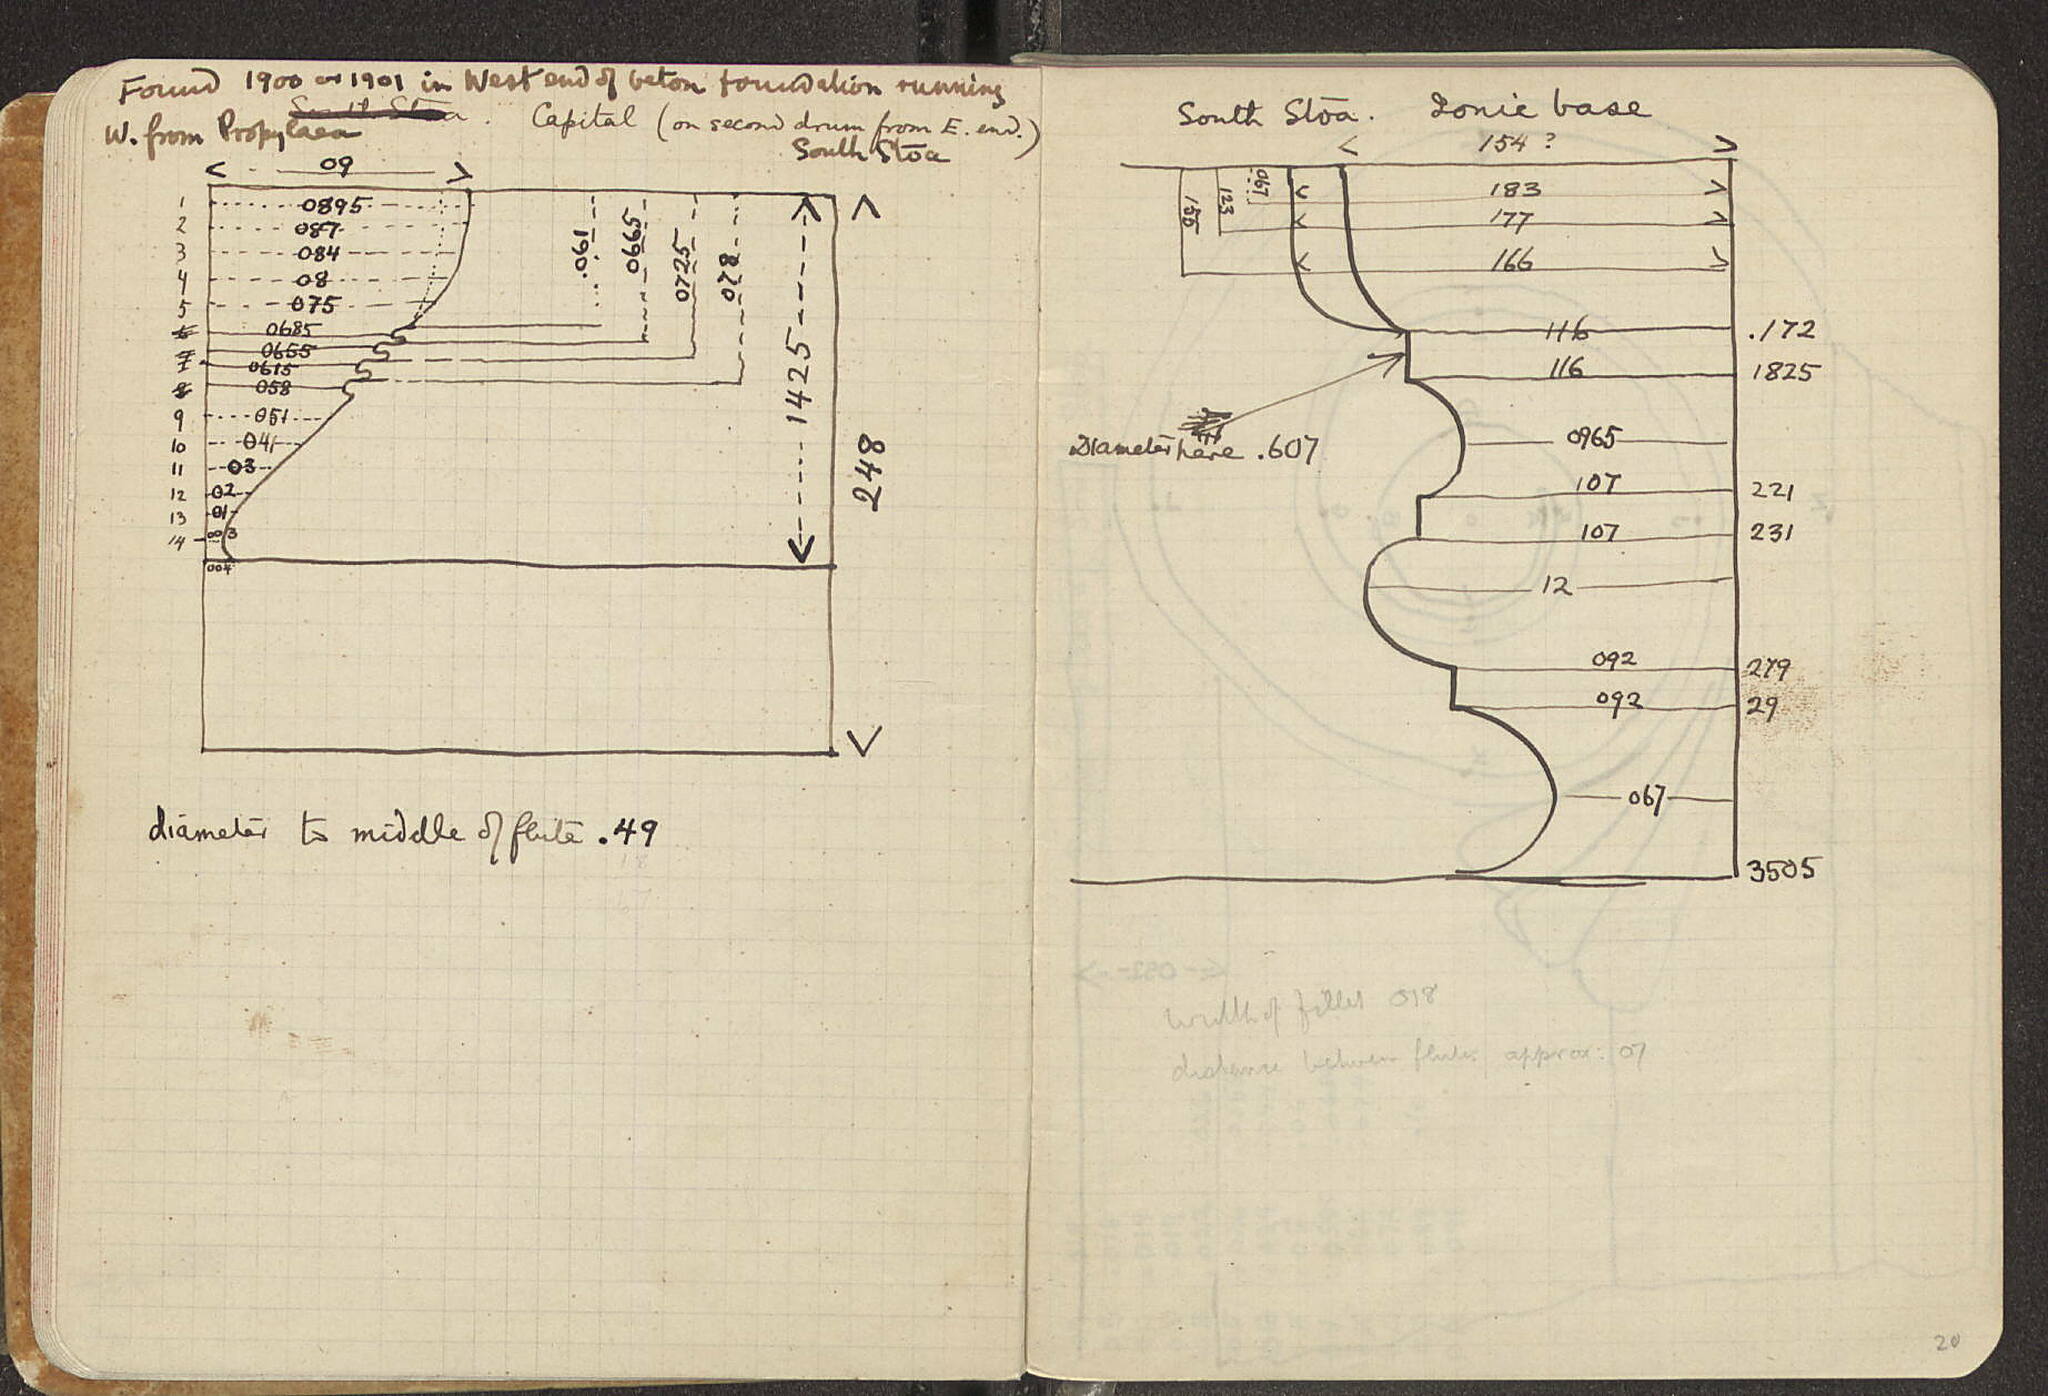 Found 1900 or 1901 in West end of beton foundation running
W. from Propylaea South Stoa. Capital (on second drum from E. end.)
South Stoa
< 09 >
1 0895
2 087
3 084
4 08
5 075
6 0685
7 0655
7 0615
8 058
9 051
10 041
11 03
12 02
13 01
14 003
004
.061
0665
0725
078
1425
248
diameter to middle of flute .49
South Stoa. Ionic base
< 154? >
067
123
155
< 183 >
< 177 >
< 166 >
116 .172
116 1825
Diameter here .607
0965
107 221
107 231
12
092 279
092 29
067
3505
width of fillet 018
distance between flutes approx: 07
20